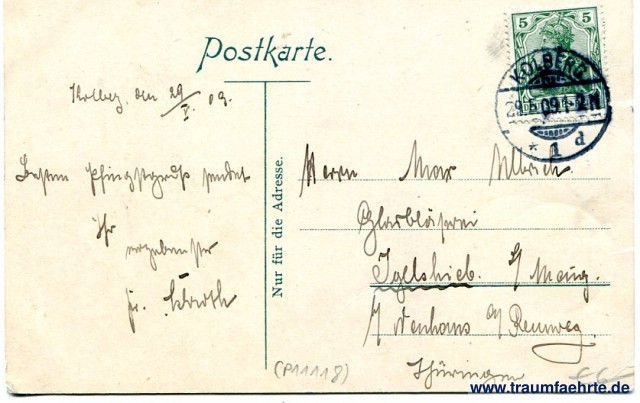 Postkarte.
5 5
KOLBERG
29.5.09.1-2N
* 1 d
Kolberg, den 29/V. 09.
Besten Pfingstgruß sendet
Ihr
ergebenster
Nur für die Adresse.
Herrn Max Ulbrich
Glasbläserei
Igelshieb.
Neuhaus a/ Rennweg
Thüringen
(P11118)
www.traumfaehrte.de